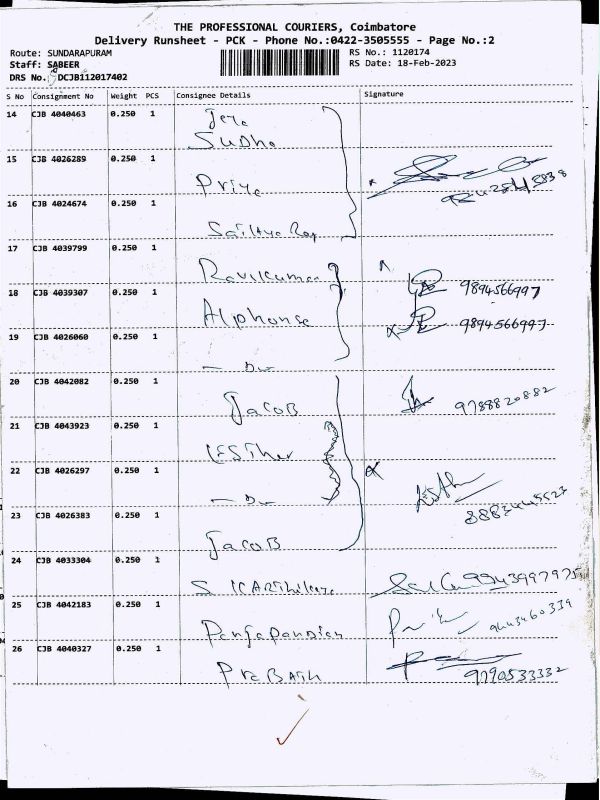 THE PROFESSIONAL COURIERS, Coimbatore
Delivery Runsheet - PCK - Phone No.:0422-3505555 - Page No.:2
Route: SUNDARAPURAM RS No.: 1120174
Staff: SABEER RS Date: 18-Feb-2023
DRS No. DCJB112017402
S No Consignment No Weight PCS Consignee Details Signature
14 CJB 4040463 0.250 1
Sudha
15 CJB 4026289 0.250 1
Priya
16 CJB 4024674 0.250 1
17 CJB 4039799 0.250 1
Ravikumar
9894566997
18 CJB 4039307 0.250 1
Alphonse 9894566997
19 CJB 4026060 0.250 1
20 CJB 4042082 0.250 1
Jacob 9788820882
21 CJB 4043923 0.250 1
Esther
22 CJB 4026297 0.250 1
23 CJB 4026383 0.250 1
Jacob
24 CJB 4033304 0.250 1
S
25 CJB 4042183 0.250 1
9443460339
26 CJB 4040327 0.250 1
9790533332